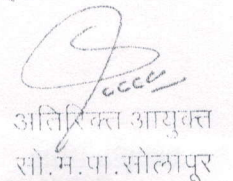 अतिरिक्त आयुक्त
सो.म.पा.सोलापूर